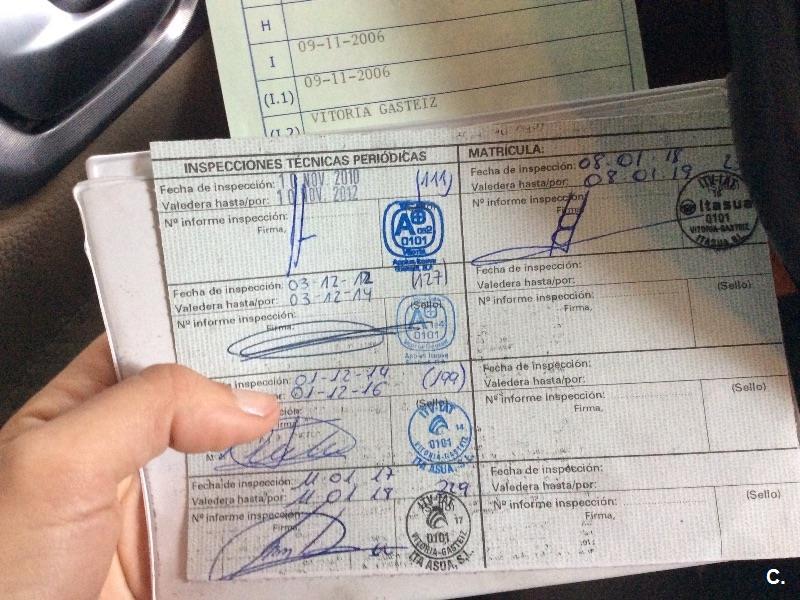 H
I 09-11-2006
(I.1) 09-11-2006
(I.2) VITORIA GASTEIZ
INSPECCIONES TÉCNICAS PERIÓDICAS
Fecha de inspección: 10 NOV. 2010 (111)
Valedera hasta/por: 10 NOV. 2012
Nº informe inspección:
Firma,
A
0101
Fecha de inspección: 03-12-12 (127)
Valedera hasta/por: 03-12-14
(Sello)
Nº informe inspección:
Firma,
A
0101
inspección: 01-12-14 (199)
Valedera hasta/por: 01-12-16
(Sello)
inspección:
ITV-TAT
14
0101
VITORIA-GASTEIZ
ITA ASUA, S.L.
Fecha de inspección: 11 01 17
Valedera hasta/por: 11 01 18 229
Nº informe inspección:
Firma,
17
0101
VITORIA-GASTEIZ
ITA ASUA, S.L.
MATRÍCULA:
Fecha de inspección: 08.01.18
Valedera hasta/por: 08.01.19
Nº informe inspección:
Firma,
Itasua
0101
VITORIA-GASTEIZ
ITASUA, S.L.
Fecha de inspección:
Valedera hasta/por:
(Sello)
Nº informe inspección:
Firma,
Fecha de inspección:
Valedera hasta/por:
(Sello)
Nº informe inspección:
Firma,
Fecha de inspección:
Valedera hasta/por:
(Sello)
Nº informe inspección:
Firma,
C.